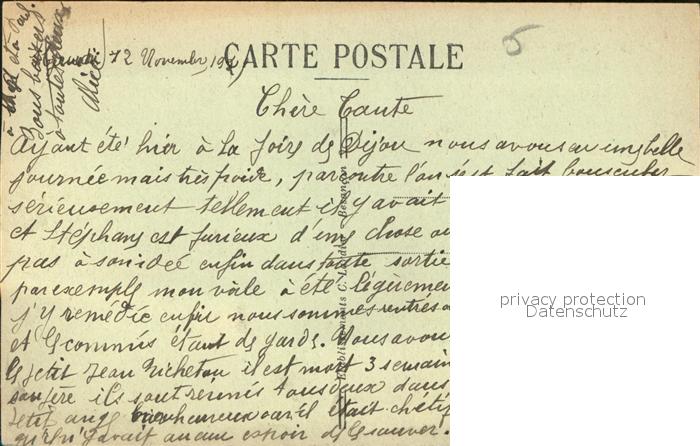 CARTE POSTALE
5
12 Novembre, 19
Chère Tante
Ayant été hier à la foire de Dijon nous avons eu une belle
journée mais très froide, par contre l'on s'est fait bousculer
sérieusement tellement il y avait
et Stéphane est furieux d'une chose
pas à son idée enfin dans toute sortie
par exemple mon voile à été légèreme
j'y remédie enfin nous sommes rentrés
et les commis étant de garde. Nous avons
le petit Jean Richeton il est mort 3 semain
son père ils sont réunis tous deux dans
petit ange bienheureux car il était chéti
qu'il n'y avait aucun espoir de le sauver.
Bons baisers
à toutes deux
Alice
Etablissements C. Lardier - Besançon
privacy protection
Datenschutz